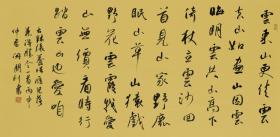 雲来山更佳雲
去山如画山因雲
晦明雲共山高下
倚杖立雲沙回
首見山家野鹿
眠山草山猿戲
野花雲霞我愛
山無價看時行
踏雲山也愛咱
張養浩雁兒落
兼得勝令
仲春